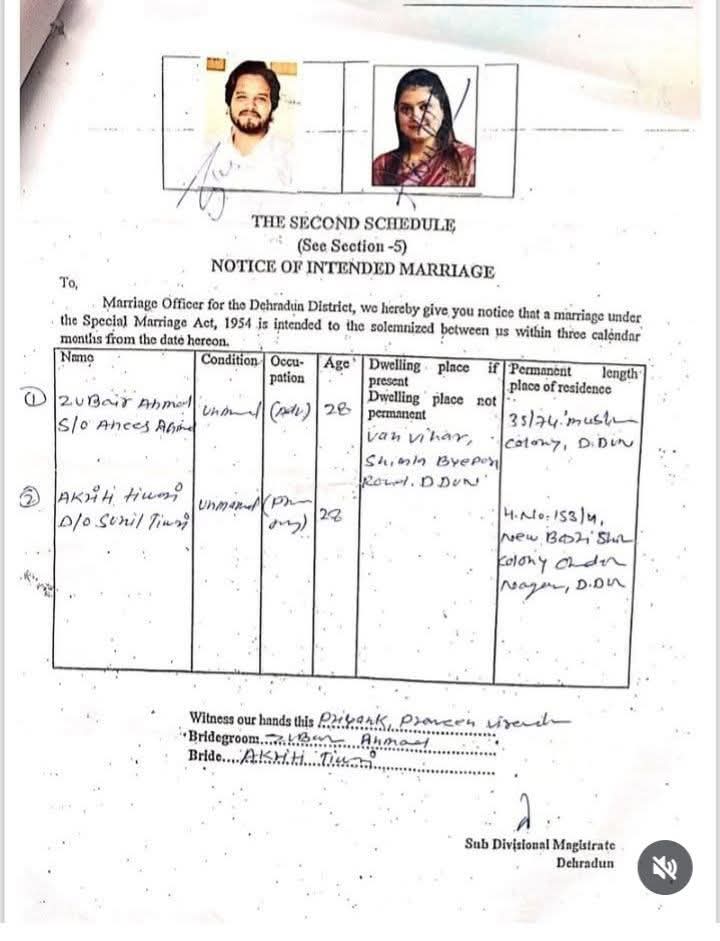 THE SECOND SCHEDULE
(See Section -5)
NOTICE OF INTENDED MARRIAGE
To,
Marriage Officer for the Dehradun District, we hereby give you notice that a marriage under
the Special Marriage Act, 1954 is intended to the solemnized between us within three calendar
months from the date hereon.
Name
Condition
Occu-
pation
Age
Dwelling place if
present
Dwelling place not
permanent
Permanent length
place of residence
①
Zubair Ahmed
S/o Anees Ahmed
(Adv)
28
Van Vihar,
Shimla Byepass
Road. D.DUN
Colony, D.DUN
②
Akriti Tiwari
D/o Sunil Tiwari
28
New
Colony
Nagar, D.DUN
Witness our hands this Priyank, Praveen
Bridegroom Zubair Ahmad
Bride AKRITI Tiwari
Sub Divisional Magistrate
Dehradun